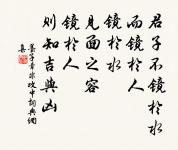 君子不鏡於水
而鏡於人
鏡於水
見面之容
鏡於人
則知吉與凶
墨子章非攻中詞典網
集